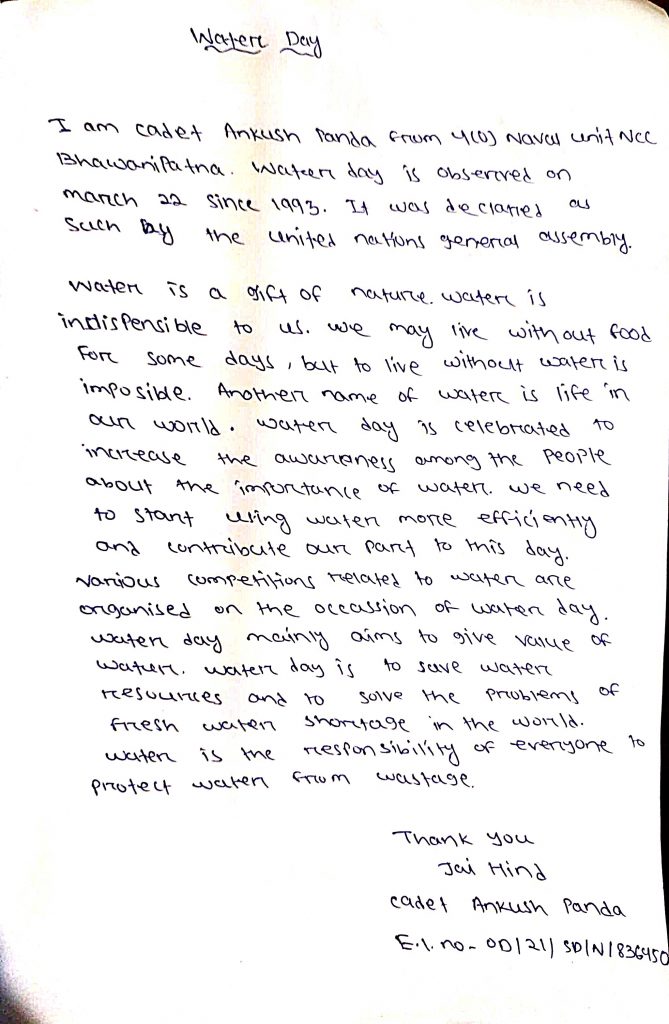 Water Day
I am cadet Ankush Panda from 4(O) Naval unit NCC
Bhawanipatna. Water day is observed on
march 22 since 1993. It was declared as
such by the united nations general assembly.
Water is a gift of nature. water is
indispensible to us. we may live without food
For some days, but to live without water is
imposible. Another name of water is life in
our world. water day is celebrated to
increase the awareness among the people
about the importance of water. we need
to start using water more efficiently
and contribute our part to this day.
various competitions related to water are
organised on the occassion of water day.
water day mainly aims to give value of
water. water day is to save water
resources and to solve the problems of
fresh water shortage in the world.
water is the responsibility of everyone to
protect water from wastage.
Thank you
Jai Hind
cadet Ankush Panda
E.l. no - OD/21/SD/N/836450